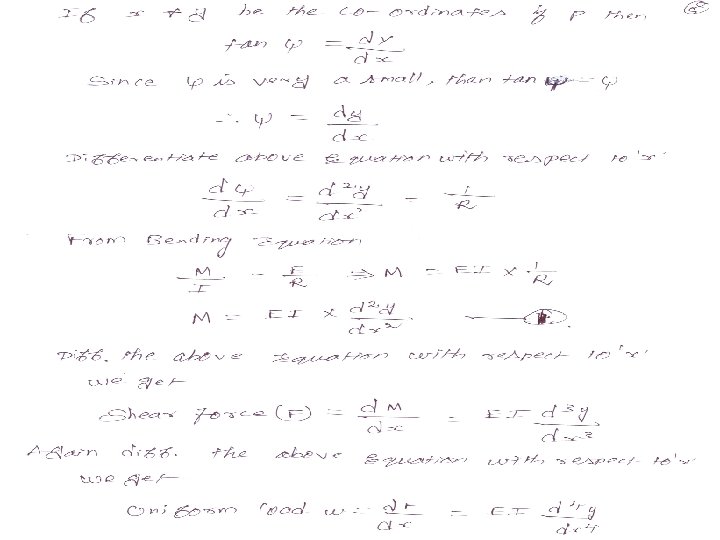 If x & y be the co-ordinates of P then
tan ψ = dy/dx
Since ψ is very a small, than tan ψ = ψ
∴ ψ = dy/dx
Differentiate above Equation with respect to 'x'
dψ/dx = d²y/dx² = 1/R
From Bending Equation
M/I = E/R ⇒ M = EI × 1/R
M = EI × d²y/dx².
Diff. the above Equation with respect to 'x'
we get
Shear force (F) = dM/dx = EI d³y/dx³
Again diff. the above Equation with respect to 'x'
we get
Uniform load w = dF/dx = EI d⁴y/dx⁴